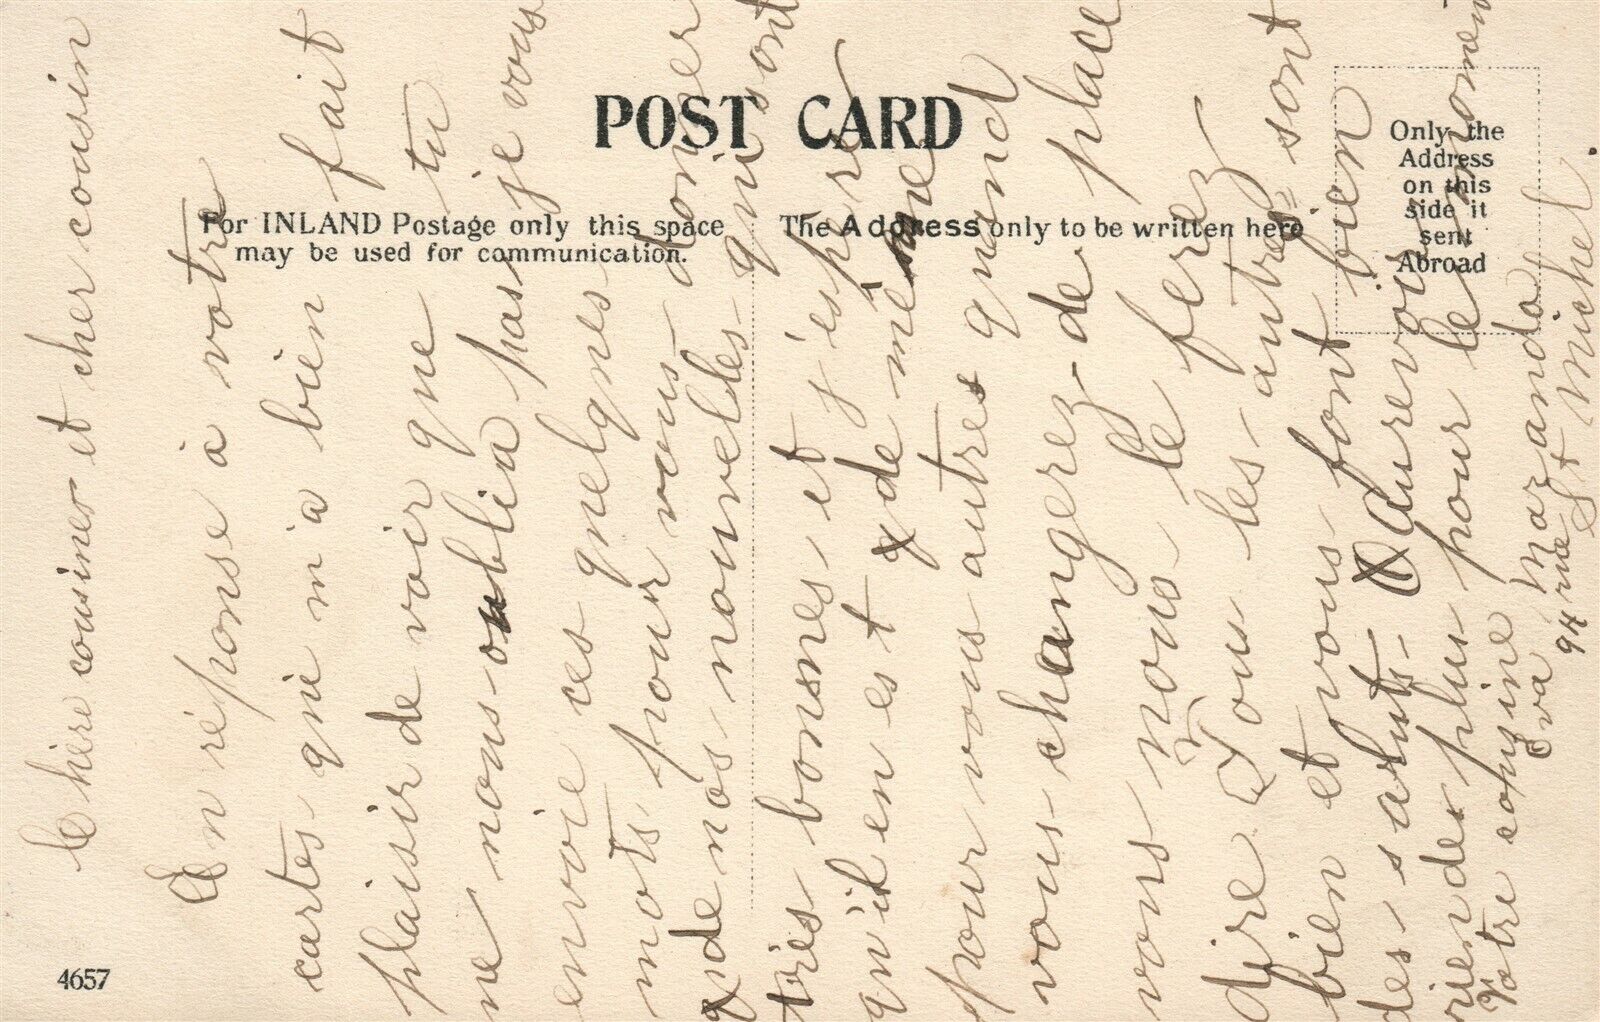 POST CARD
For INLAND Postage only this space
may be used for communication.
The Address only to be written here
Only the
Address
on this
side it
sent
Abroad
4657
Chère cousine et cher cousin
En réponse à votre
cartes qui m'a bien fait
plaisir de voir que tu
ne nous oublia pas je vous
envoie ces quelques
mots pour vous donner
de nos nouvelles qui sont
très bonnes et j'espère
qu'il en est de même
pour vous autres quand
vous changerez de place
vous nous le ferez
dire Tous les autres sont
bien et vous font bien
des saluts Aurevoir
rien de plus pour le moment
Votre cousine
Eva Marando
94 rue St Michel.